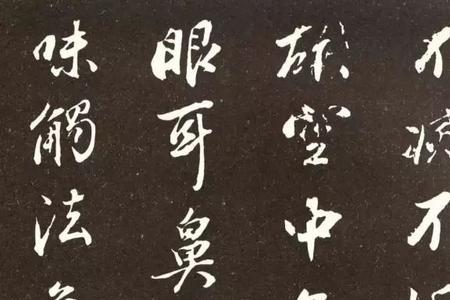 不 不
故空中
眼耳鼻
味觸法